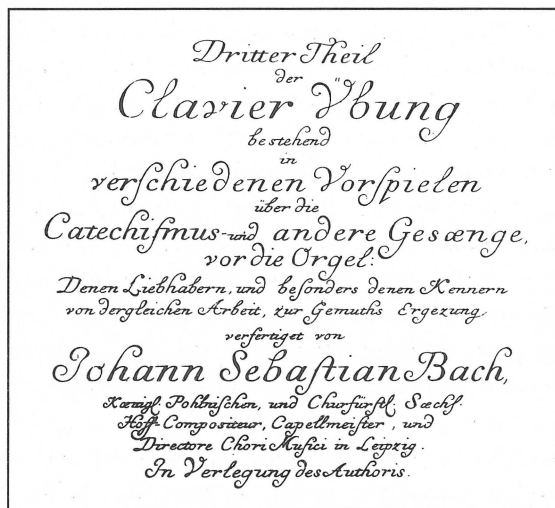 Dritter Theil
der
Clavier Ubung
bestehend
in
verſchiedenen Vorſpielen
über die
Catechiſmus-und andere Gesænge,
vor die Orgel:
Denen Liebhabern, und beſonders denen Kennern
von dergleichen Arbeit, zur Gemüths Ergezung
verfertiget von
Johann Sebaſtian Bach,
Kœnigl. Pohlniſchen, und Churfürſtl. Sæchſ.
Hoff-Compoſiteur, Capellmeiſter, und
Directore Chori Muſici in Leipzig.
In Verlegung des Authoris.